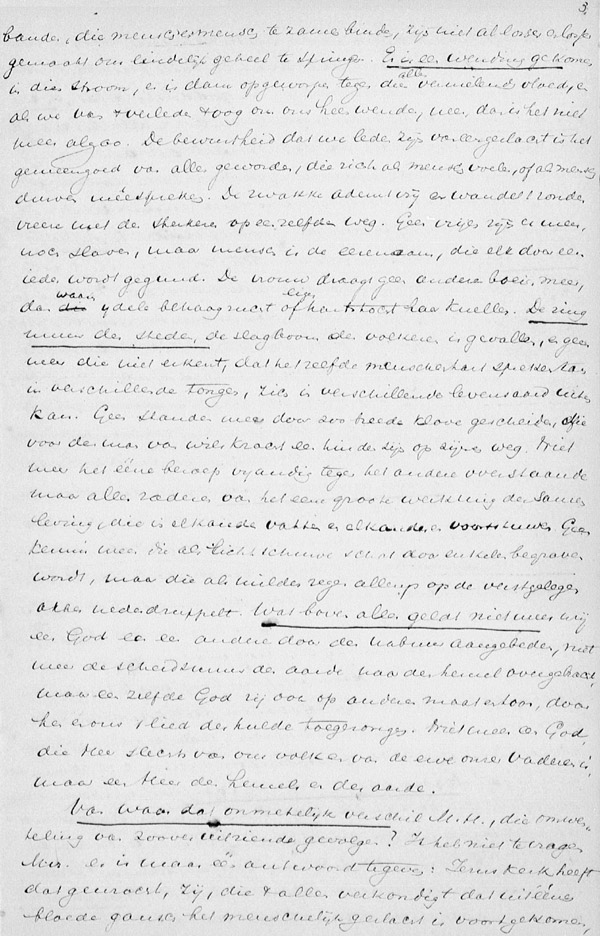 3.
banden, die menschen en menschen te zamen binden, zijn niet al losser en losser
gemaakt om eindelijk geheel te springen. Er is een wending gekomen
in dien stroom, er is dam opgeworpen tegen die alles vernielend vloed, en
als we van 't verleden 't oog om ons heen wenden, neen, dan is het niet
meer alzoo. De bewustheid dat we leden zijn van een geslacht is het
gemeengoed van allen geworden, die zich als mensch voelen, of als mensch
durven meêspreken. De zwakke ademt vrij en wandelt zonder
vreeze met de sterkere op een zelfden weg. Geen vrijen zijn er meer,
noch slaven, maar mensch is de eerenaam, die elk door een
ieder wordt gegund. De vrouw draagt geen andere boeien meer,
dan waarin ydele behaagzucht of eigen hartstocht haar knellen. De ring
muren der steden, de slagboomen der volkeren is gevallen, er is geen
meer die niet erkent, dat hetzelfde menschenhart spreken kan
in verschillende tongen, zich in verschillenden levensaard uiten
kan. Geen standen meer door zoo breede klove gescheiden, die
voor den man van wilskracht een hinder zijn op zijn weg. Niet
meer het ééne beroep vyandig tegen het andere overstaande
maar allen raderen van het een groote werktuig der samen
leving, die in elkander vatten en elkander voortstuwen. Geen
kennis meer die als lichtschuwe schat door enkelen begraven
wordt, maar die als milden regen allengs op de verstgelegen
akker nederdruppelt. Wat boven alles geldt niet meer wij
een God en een andere door den nabuur aangebeden, niet
meer de scheidsmuren der aarde naar den hemel overgebracht,
maar een zelfde God zij ook op anderen maat en toon, door
hen en ons 't lied der hulde toegezongen. Niet meer een God,
die Heer slechts van ons volk en van de erve onzer Vaderen is,
maar een Heer der hemelen en der aarde.
Van waar dat onmetelijk verschil M. H., die omwen-
teling van zooveruitziende gevolgen? Ik heb niet te vragen
Mrs. er is maar één antwoord te geven: Jezus kerk heeft
dat gewrocht, zij, die 't aller verkondigt dat uit éénen
bloede gansch het menschelijk geslacht is voortgekomen,